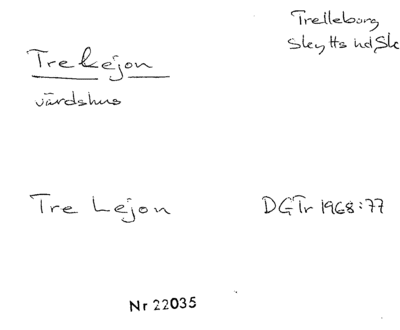 Trelleborg
Skytts hd Sk
Tre Lejon
värdshus
Tre Lejon
DGTr 1968:77
Nr 22035